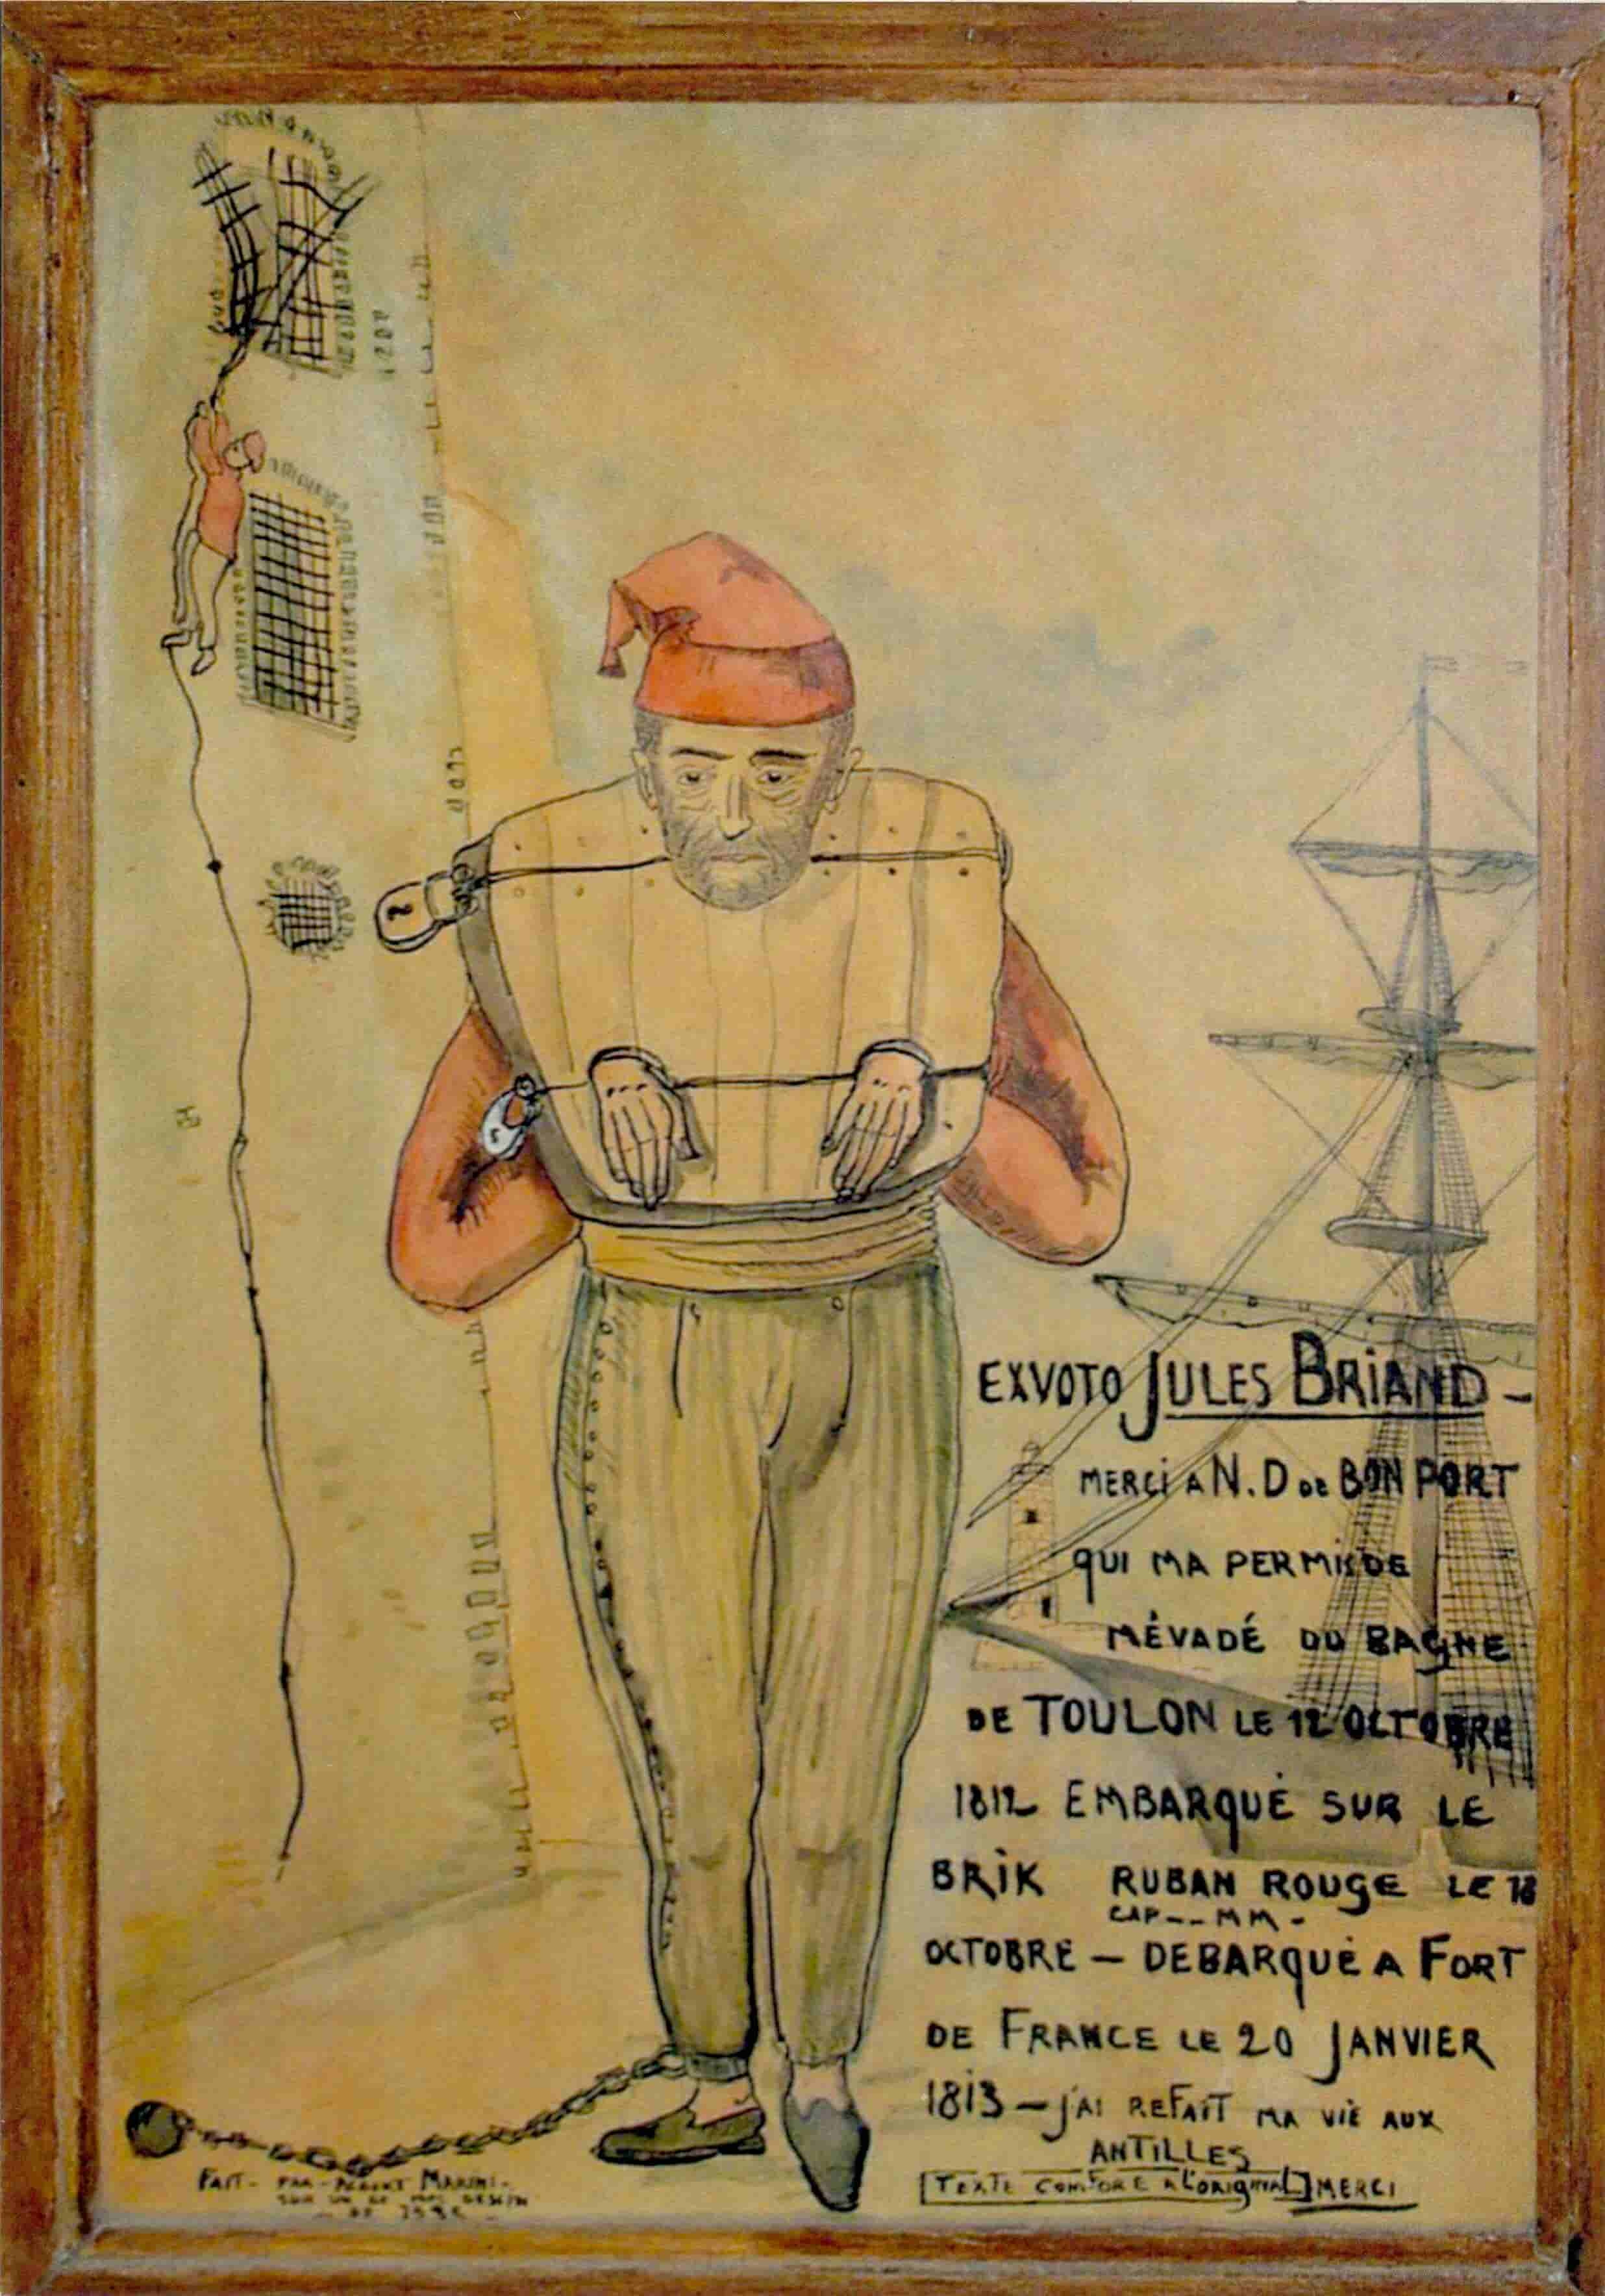 EXVOTO JULES BRIAND -
MERCI A N.D DE BON PORT
QUI MA PERMIS DE
MÉVADÉ DU BAGNE
DE TOULON LE 12 OCTOBRE
1812 EMBARQUÉ SUR LE
BRIK RUBAN ROUGE LE 18
CAP -- M M -
OCTOBRE - DEBARQUÉ A FORT
DE FRANCE LE 20 JANVIER
1813 - J'AI REFAIT MA VIE AUX
ANTILLES
[TEXTE CONFORE A L'ORIGINAL] MERCI
FAIT - PAR - ALBERT MARINI -
SUR UN DE